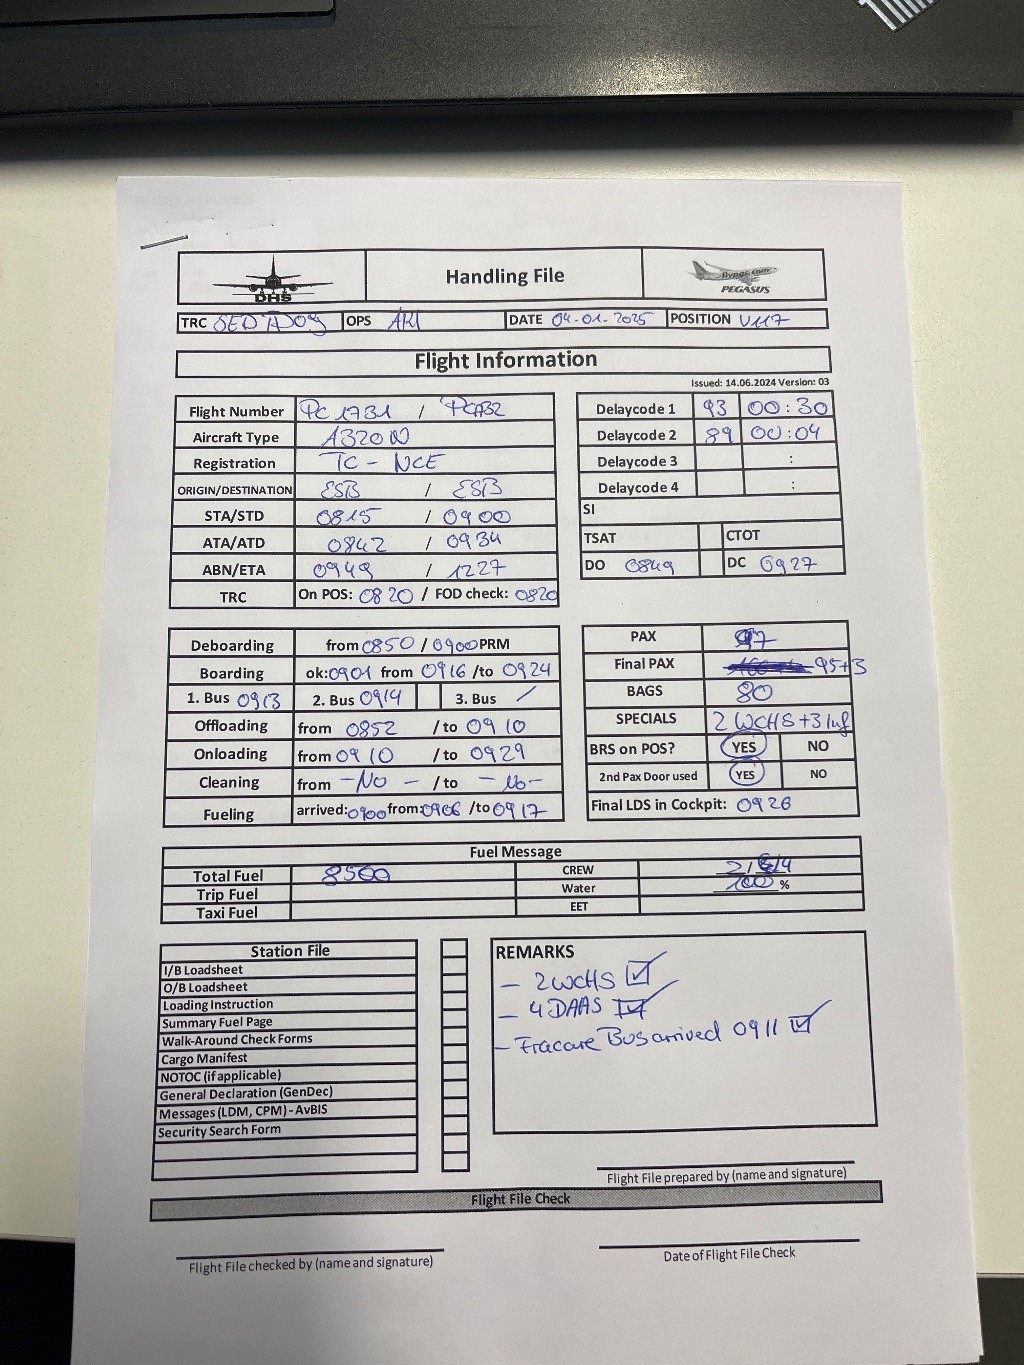 DHS
Handling File
flypgs.com
PEGASUS
TRC OPS DATE 04-01-2025 POSITION V117
Flight Information
Issued: 14.06.2024 Version: 03
Flight Number PC 1731 /
Aircraft Type A320N
Registration TC - NCE
ORIGIN/DESTINATION ESB / ESB
STA/STD 0815 / 0900
ATA/ATD 0842 / 0934
ABN/ETA 0949 / 1227
TRC On POS: 0820 / FOD check: 0820
Delaycode 1 93 00:30
Delaycode 2 89 00:04
Delaycode 3 :
Delaycode 4 :
SI
TSAT CTOT
DO 0849 DC 0927
Deboarding from 0850 / 0900 PRM
Boarding ok: 0901 from 0916 /to 0924
1. Bus 0913 2. Bus 0914 3. Bus /
Offloading from 0852 /to 0910
Onloading from 0910 /to 0929
Cleaning from -No- /to -No-
Fueling arrived: 0900 from: 0906 /to 0917
PAX 97
Final PAX 95+3
BAGS 80
SPECIALS 2 WCHS +3 Inf
BRS on POS? YES NO
2nd Pax Door used YES NO
Final LDS in Cockpit: 0926
Fuel Message
Total Fuel 8500 CREW 2/ /4
Trip Fuel Water 100 %
Taxi Fuel EET
Station File
I/B Loadsheet
O/B Loadsheet
Loading Instruction
Summary Fuel Page
Walk-Around Check Forms
Cargo Manifest
NOTOC (if applicable)
General Declaration (GenDec)
Messages (LDM, CPM) - AvBIS
Security Search Form
REMARKS
- 2 WCHS ☑
- 4 DAAS ☑
- Fracare Bus arrived 0911 ☑
Flight File prepared by (name and signature)
Flight File Check
Flight File checked by (name and signature)
Date of Flight File Check